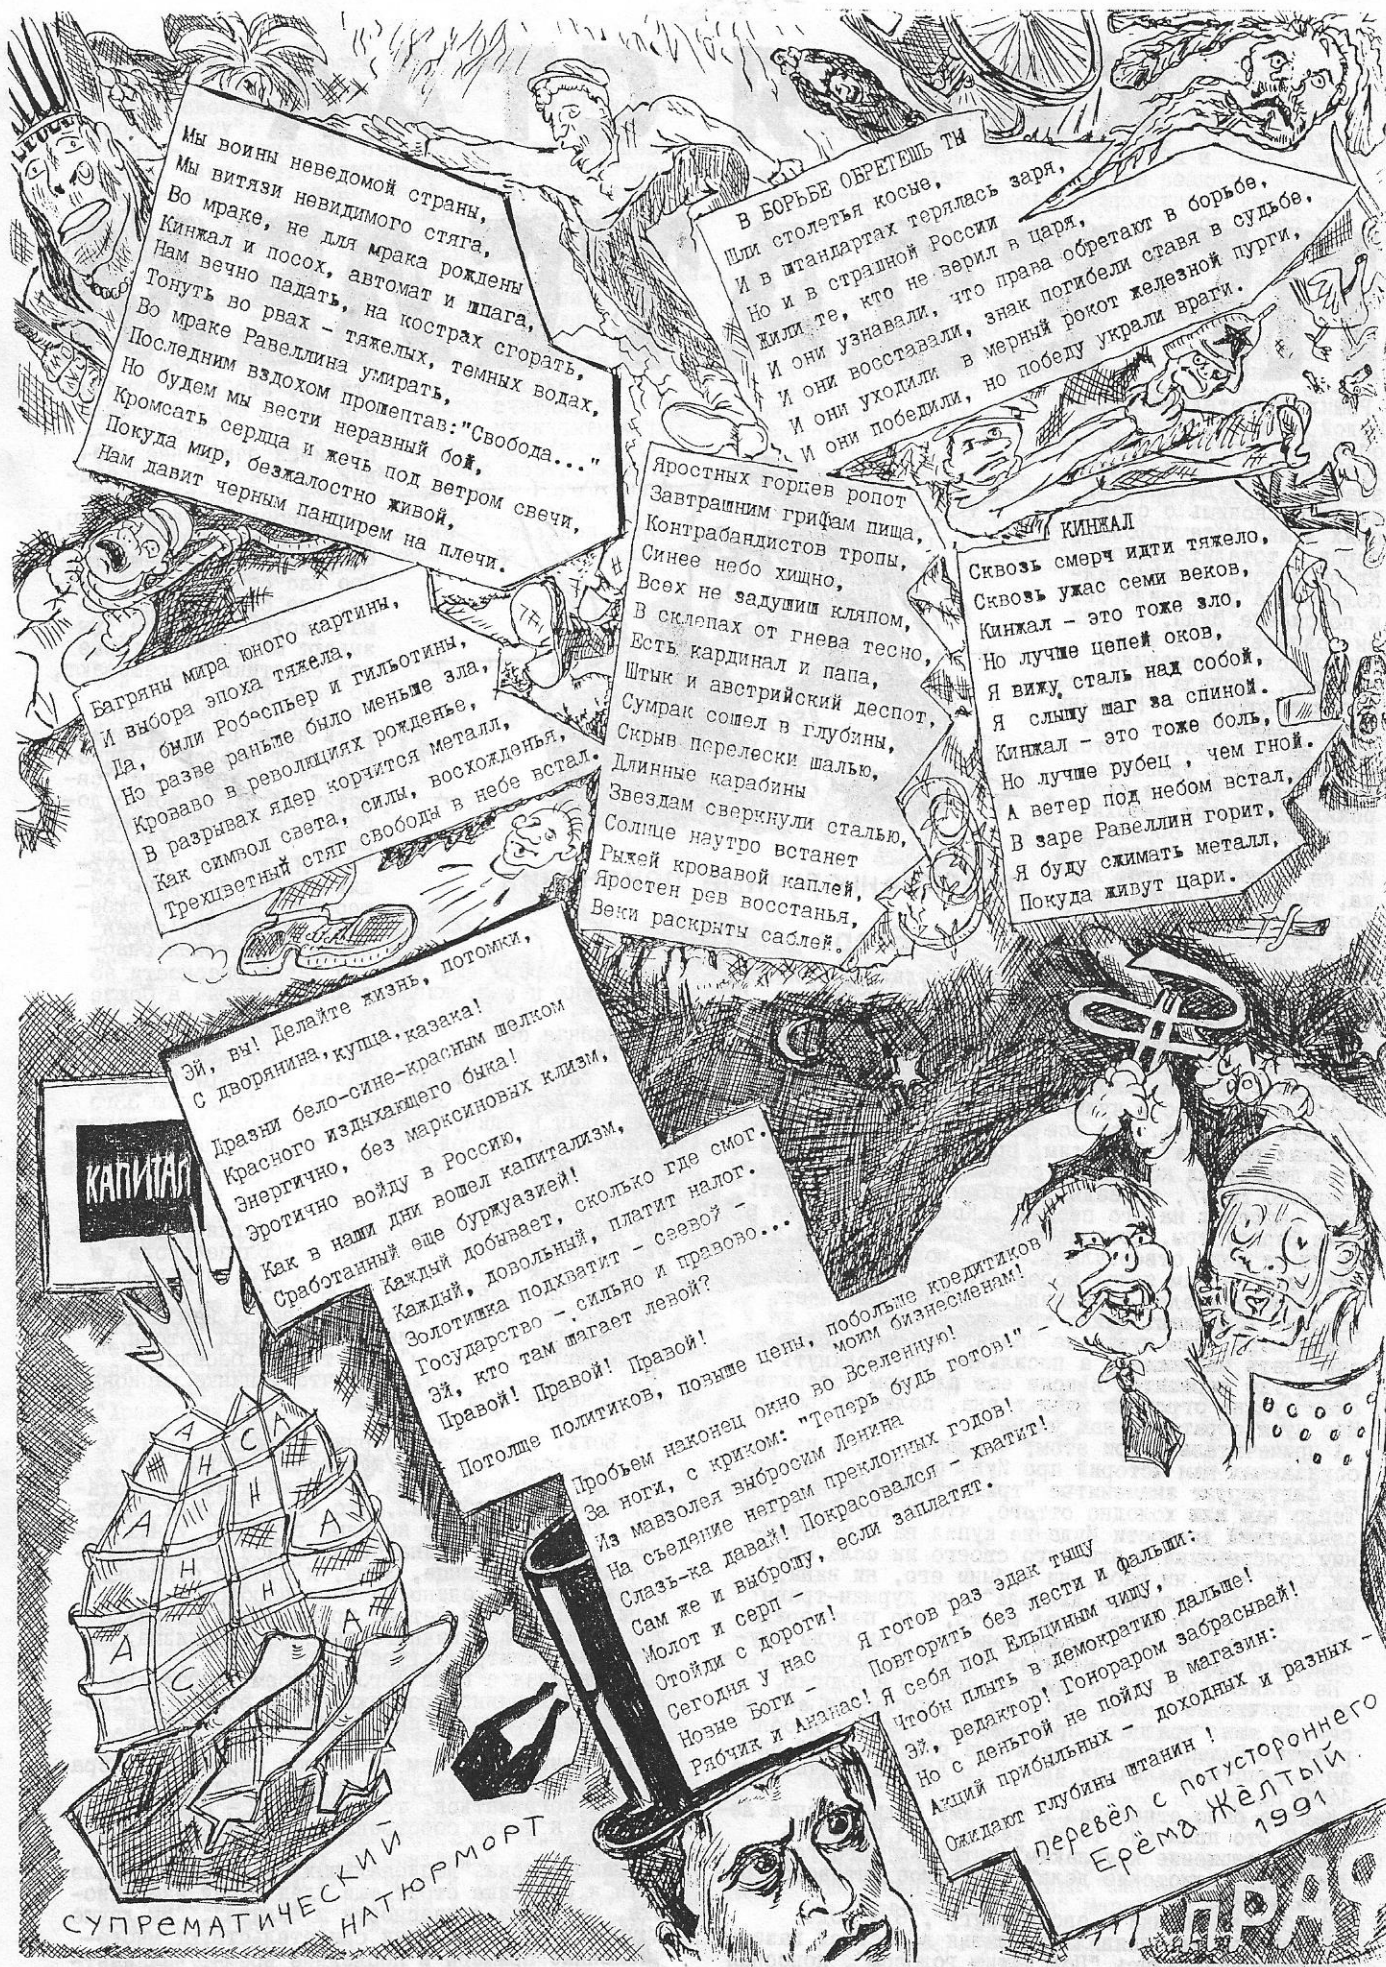 Мы воины неведомой страны,
Мы витязи невидимого стяга,
Во мраке, не для мрака рождены
Кинжал и посох, автомат и шпага,
Нам вечно падать, на кострах сгорать,
Тонуть во рвах - тяжелых, темных водах,
Во мраке Равеллина умирать,
Последним вздохом прошептав:"Свобода..."
Но будем мы вести неравный бой,
Кромсать сердца и жечь под ветром свечи,
Покуда мир, безжалостно живой,
Нам давит черным панцирем на плечи.
В БОРЬБЕ ОБРЕТЕШЬ ТЫ
Шли столетья косые,
И в штандартах терялась заря,
Но и в страшной России
Жили те, кто не верил в царя,
И они узнавали, что права обретают в борьбе,
И они восставали, знак погибели ставя в судьбе,
И они уходили в мерный рокот железной пурги,
И они победили, но победу украли враги.
Багряны мира юного картины,
И выбора эпоха тяжела,
Да, были Робеспьер и гильотины,
Но разве раньше было меньше зла,
Кроваво в революциях рожденье,
В разрывах ядер корчится металл,
Как символ света, силы, восхожденья,
Трехцветный стяг свободы в небе встал.
Яростных горцев ропот
Завтрашним грифам пища,
Контрабандистов тропы,
Синее небо хищно,
Всех не задушиш кляпом,
В склепах от гнева тесно,
Есть кардинал и папа,
Штык и австрийский деспот,
Сумрак сошел в глубины,
Скрыв перелески шалью,
Длинные карабины
Звездам сверкнули сталью,
Солнце наутро встанет
Рыжей кровавой каплей,
Яростен рев восстанья,
Веки раскрыты саблей.
КИНЖАЛ
Сквозь смерч идти тяжело,
Сквозь ужас семи веков,
Кинжал - это тоже зло,
Но лучше цепей оков,
Я вижу сталь над собой,
Я слышу шаг за спиной.
Кинжал - это тоже боль,
Но лучше рубец , чем гной.
А ветер под небом встал,
В заре Равеллин горит,
Я буду сжимать металл,
Покуда живут цари.
Эй, вы! Делайте жизнь, потомки,
С дворянина,купца,казака!
Дразни бело-сине-красным шелком
Красного издыхающего быка!
Энергично, без марксиновых клизм,
Эротично войду в Россию,
Как в наши дни вошел капитализм,
Сработанный еще буржуазией!
Каждый добывает, сколько где смог.
Каждый, довольный, платит налог.
Золотишка подхватит - сеевой -
Государство - сильно и правово...
Эй, кто там шагает левой?
Правой! Правой! Правой!
Потолще политиков, повыше цены, побольше кредитиков
моим бизнесменам!
Пробьем наконец окно во Вселенную!
За ноги, с криком: "Теперь будь готов!" -
Из мавзолея выбросим Ленина
На съедение неграм преклонных годов!
Слазь-ка давай! Покрасовался - хватит!
Сам же и выброшу, если заплатят.
Молот и серп -
Отойди с дороги!
Сегодня у нас
Новые Боги -
Рябчик и Ананас!
Я готов раз эдак тыщу
Повторить без лести и фальши:
Я себя под Ельциным чищу,
Чтобы плыть в демократию дальше!
Эй, редактор! Гонораром забрасывай!
Но с деньгой не пойду в магазин:
Акций прибыльных - доходных и разных -
Ожидают глубины штанин !
перевёл с потустороннего
Ерёма Жёлтый
1991
КАПИТАЛ
А Н А Н А С
СУПРЕМАТИЧЕСКИЙ
НАТЮРМОРТ